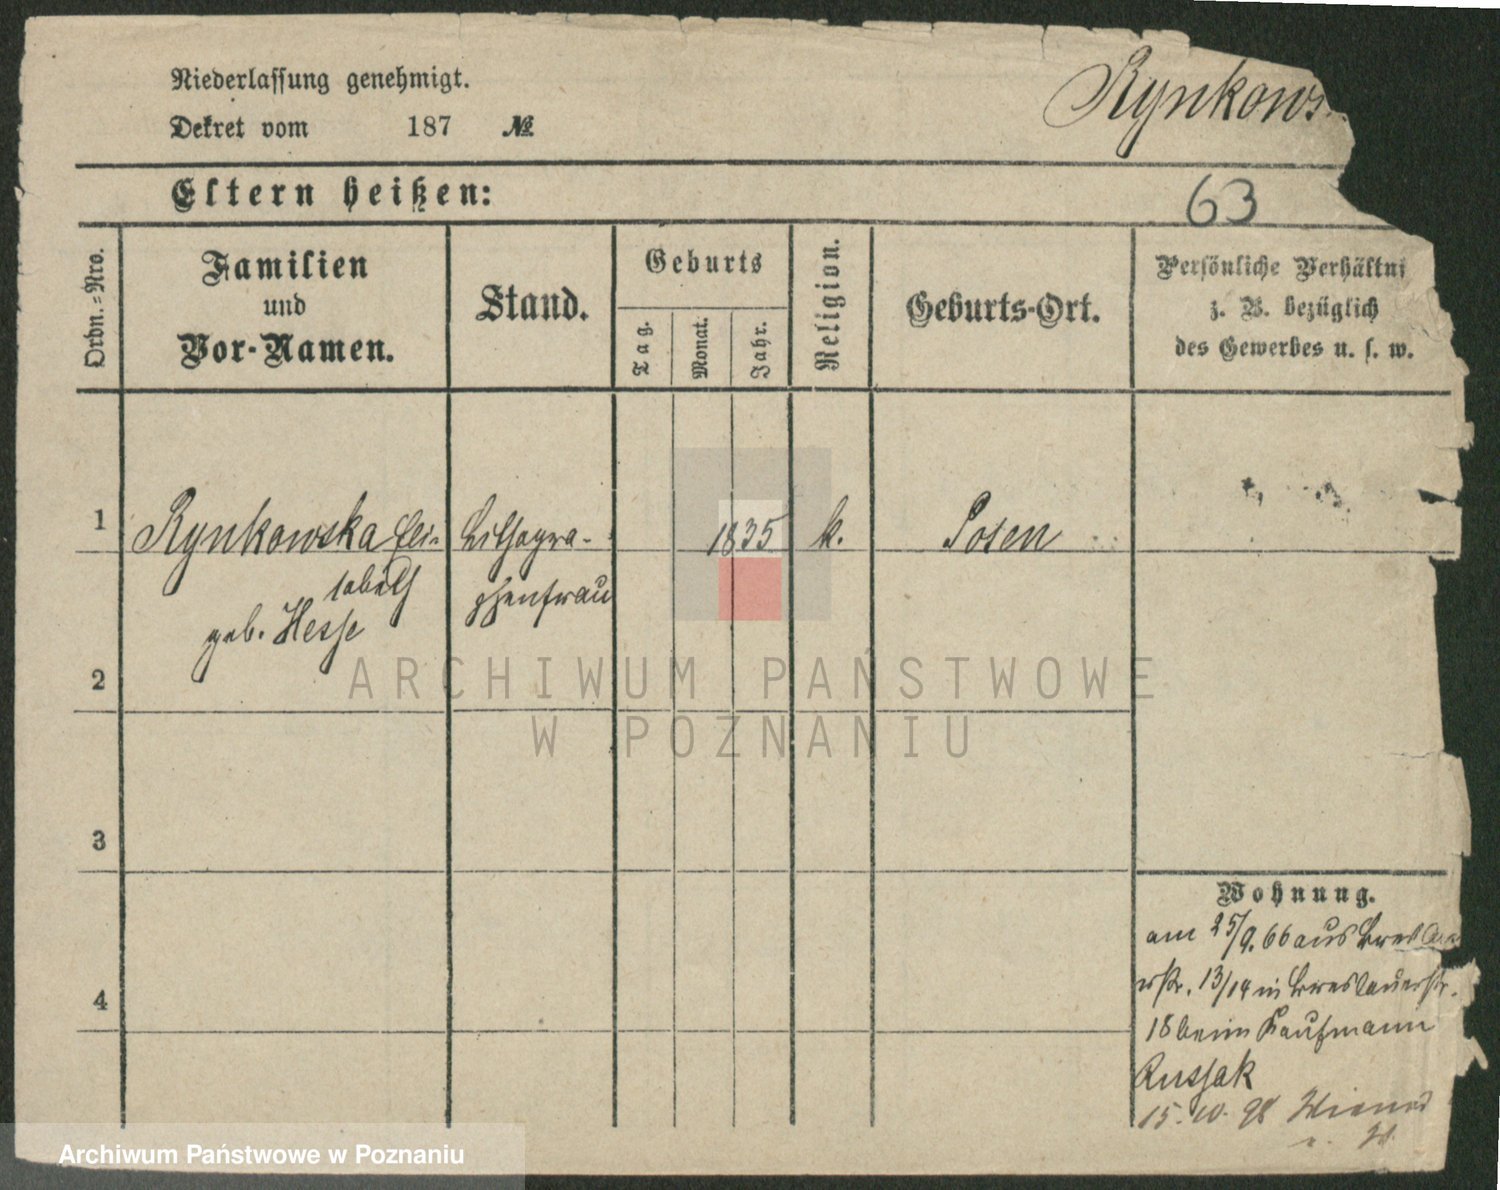 Niederlassung genehmigt.
Dekret vom 187 №
Rynkows
Eltern heißen:
63
Ordn.=Nro.
Familien
und
Vor-Namen.
Stand.
Geburts
Tag.
Monat.
Jahr.
Religion.
Geburts-Ort.
Persönliche Verhältni
z. B. bezüglich
des Gewerbes u. s. w.
1 Rynkowska Eli= Lithogra- 1835 k. Posen
sabeth phenfrau
geb. Hesse
2
ARCHIWUM PAŃSTWOWE
W POZNANIU
3
Wohnung.
am 25/9. 66 aus Breslau
erstr. 13/14 in Breslauerstr.
4
18 beim Kaufmann
Russak
15. 10. 98
Archiwum Państwowe w Poznaniu